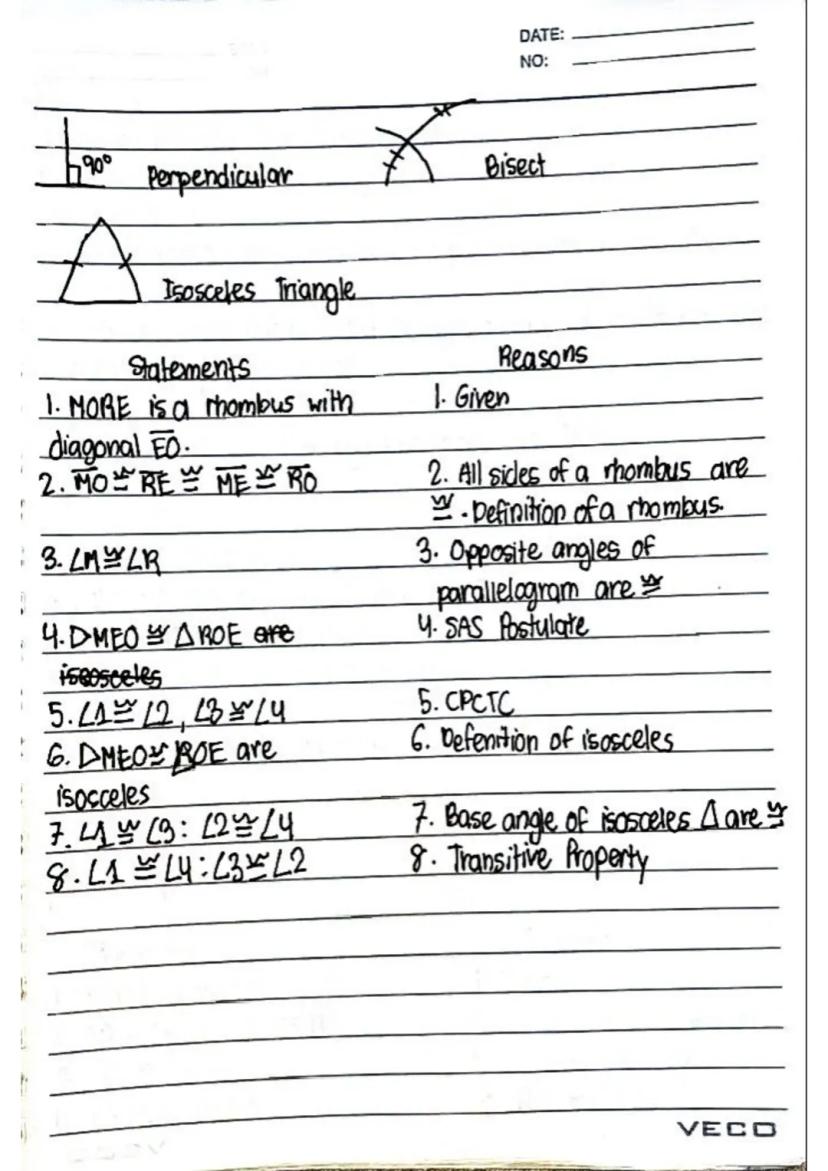 DATE:
NO:
90° Perpendicular
Bisect
Isosceles Triangle
Statements
Reasons
1. MORE is a rhombus with
1. Given
diagonal EO.
2. MO ≅ RE ≅ ME ≅ RO
2. All sides of a rhombus are
≅. Definition of a rhombus.
3. ∠M ≅ ∠R
3. Opposite angles of
parallelogram are ≅
4. DMEO ≅ △ROE are
4. SAS Postulate
isosceles
5. ∠1 ≅ ∠2, ∠3 ≅ ∠4
5. CPCTC
6. DMEO ≅ ROE are
6. Defenition of isosceles
isocceles
7. ∠1 ≅ ∠3 : ∠2 ≅ ∠4
7. Base angle of isosceles △ are ≅
8. ∠1 ≅ ∠4 : ∠3 ≅ ∠2
8. Transitive Property
VECO